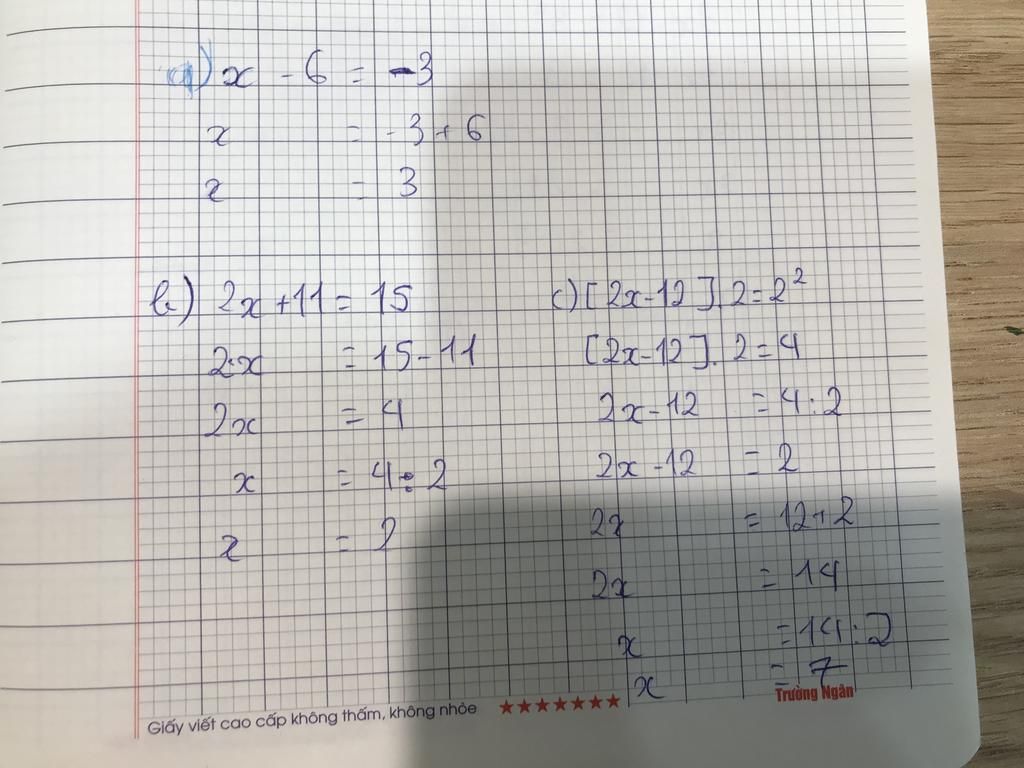 a) x - 6 = -3
x = -3 + 6
x = 3
b) 2x + 11 = 15
2.x = 15 - 11
2x = 4
x = 4 : 2
x = 2
c) [2x-12].2 = 2²
[2x-12].2 = 4
2x-12 = 4:2
2x-12 = 2
2x = 12+2
2x = 14
x = 14:2
x = 7
Trường Ngân
Giấy viết cao cấp không thấm, không nhòe ★★★★★★★